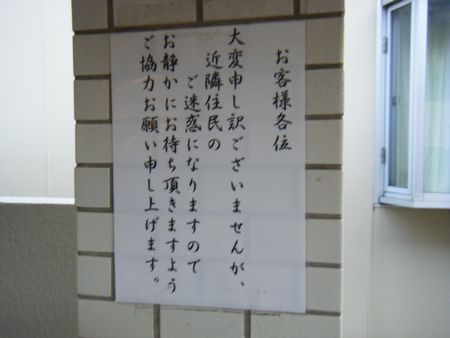 お客様各位
大変申し訳ございませんが、
近隣住民の
ご迷惑になりますので
お静かにお待ち頂きますよう
ご協力お願い申し上げます。